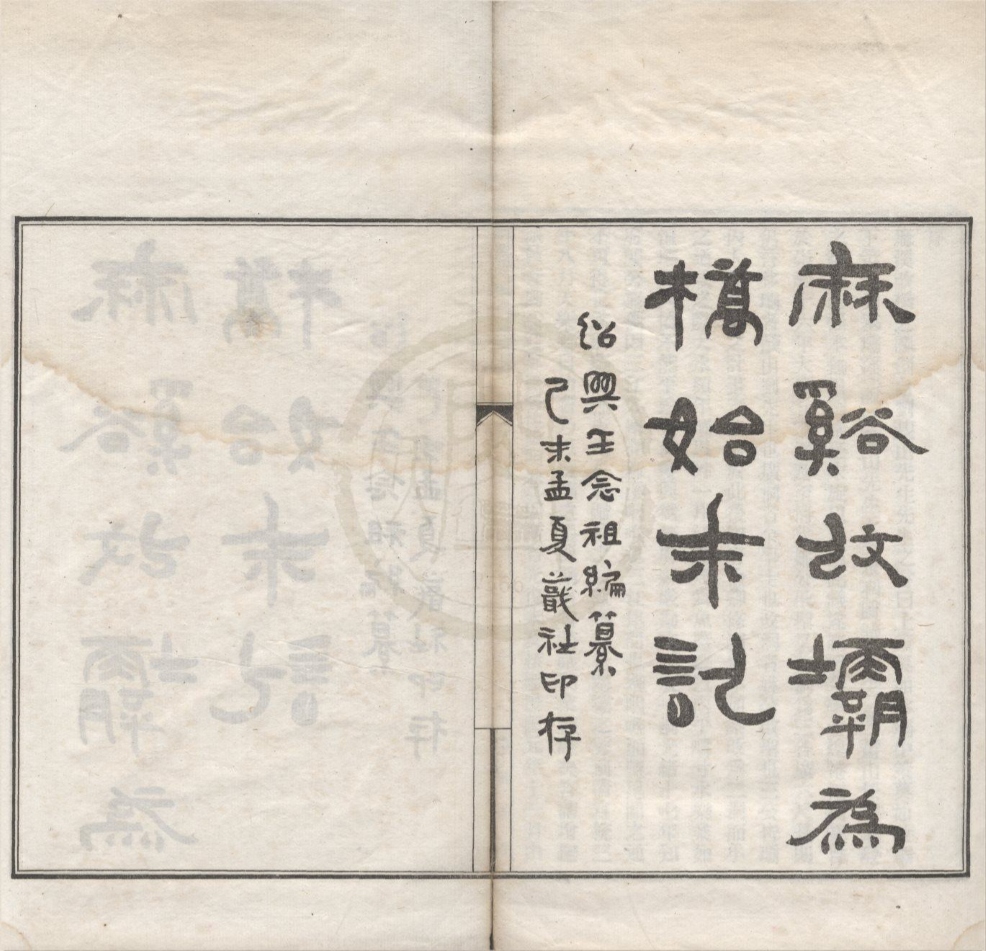 麻谿改壩為
橋始末記
紹興王念祖編纂
己未孟夏蕺社印存